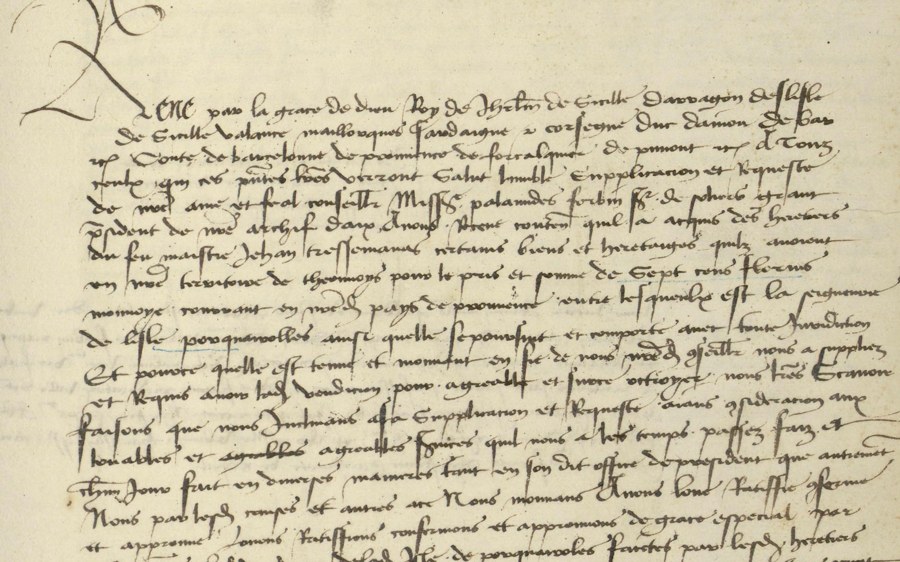 Rene par la grace de dieu Roy de Jhrlm de Sicille darragon de lisle
de Sicille valance maillorques Sardaigne et corsegue duc daniou de bar
etc Conte de barcelonne de prouuence de forcalquier de pimont etc A Tous
ceulx qui ces pntes lres verront Salut lumble Supplication et Requeste
de nre ame et feal conseillr Missre palamides forbin sr de soliers et grant
psident de nre archif daix Anous Recene conten quil a acquis des heretiers
du feu maistre Jehan tressemanas certains biens et heretaiges quilz auoient
en nre terrytoire de pour le pris et somme de Sept cens florins
monnoye courrant en nred pays de prouuence entre lesqueulx est la seigneurie
de lisle porquarolles ainse quelle se poursuit et comporte auec toute Juridiction
Et pource quelle est tenue et mouuant en fie de nous nred conseillr nous a supplier
et Requis auoir lad vendicion pour agreable et sur ce octroyer nous lres Scauoir
faisons que nous Inclinans a sa Supplication et Requeste aians consideracion aux
louables et agreables seruices quil nous a les temps passez faiz et
chun Jour fait en diuerses manieres tant en son dit office de president que autrement
Nous par lesd causes et autres ace Nous mouuans Auons loue Ratiffie conferme
et approuue louons Ratiffions confermons et approuuons de grace especial par
de lad Isle de porquarolles faictes par lesd heretiers